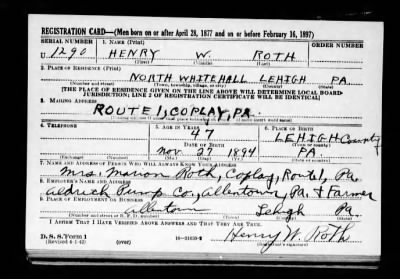 REGISTRATION CARD—(Men born on or after April 28, 1877 and on or before February 16, 1897)
SERIAL NUMBER 1. NAME (Print) ORDER NUMBER
U 1290 HENRY W. ROTH
(First) (Middle) (Last)
2. PLACE OF RESIDENCE (Print)
NORTH WHITEHALL LEHIGH PA.
(Number and street) (Town, township, village, or city) (County) (State)
[THE PLACE OF RESIDENCE GIVEN ON THE LINE ABOVE WILL DETERMINE LOCAL BOARD
JURISDICTION; LINE 2 OF REGISTRATION CERTIFICATE WILL BE IDENTICAL]
3. MAILING ADDRESS
ROUTE 1, COPLAY, PA.
4. TELEPHONE 5. AGE IN YEARS 6. PLACE OF BIRTH
47 LEHIGH County
DATE OF BIRTH (Town or county)
Nov 27 1894 PA.
(Exchange) (Number) (Mo.) (Day) (Yr.) (State or country)
7. NAME AND ADDRESS OF PERSON WHO WILL ALWAYS KNOW YOUR ADDRESS
Mrs. Marion Roth, Coplay, Route 1, Pa.
8. EMPLOYER'S NAME AND ADDRESS
Aldrich Pump Co, Allentown, Pa. & Farmer
9. PLACE OF EMPLOYMENT OR BUSINESS
Allentown Lehigh Pa.
(Number and street or R. F. D. number) (Town) (County) (State)
I AFFIRM THAT I HAVE VERIFIED ABOVE ANSWERS AND THAT THEY ARE TRUE.
D. S. S. Form 1 Henry W. Roth
(Revised 4-1-42) (over) (Registrant's signature)